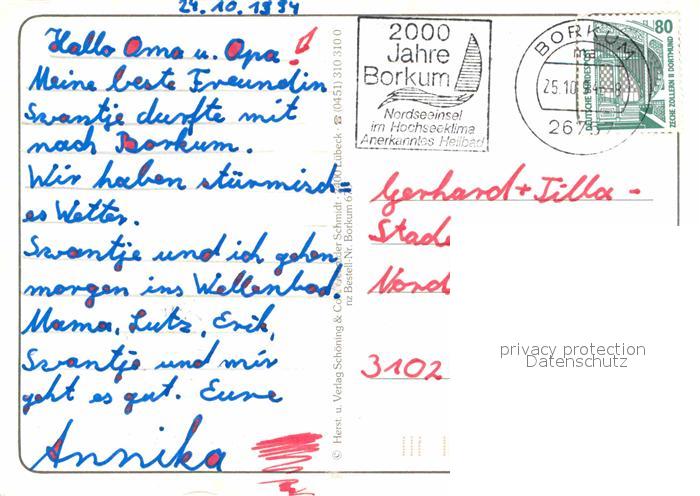 24.10.1994
Hallo Oma u. Opa!
Meine beste Freundin
Swantje durfte mit
nach Borkum.
Wir haben stürmisch=
es Wetter.
Swantje und ich gehen
morgen ins Wellenbad.
Mama, Lutz, Erik,
Swantje und mir
geht es gut. Eure
Annika
© Herst. u. Verlag Schöning & Co. Schmidt · Lübeck · ☎ (0451) 310 310 0
nz Bestell-Nr. Borkum
2000
Jahre
Borkum
Nordseeinsel
im Hochseeklima
Anerkanntes Heilbad
BORKUM
25.10
80
DEUTSCHE BUNDESPOST
ZECHE ZOLLERN II DORTMUND
Gerhard + Tilla -
Stad
Nord
3102
privacy protection
Datenschutz